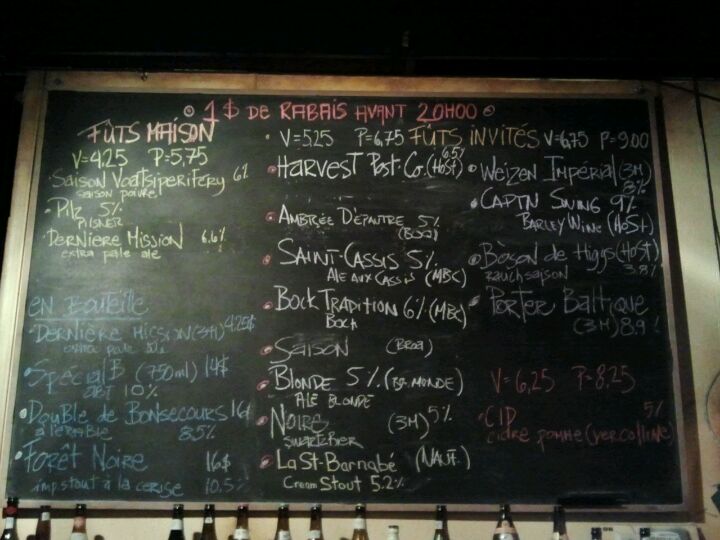 1$ DE RABAIS AVANT 20H00
FÛTS MAISON
V=4,25 P=5,75
SAISON VOATSIPERIFERY 6%
SAISON POIVRE
PILZ 5%
PILSNER
DERNIERE MISSION 6,6%
extra pale ale
EN BOUTEILLE
DERNIÈRE MISSION (3H) 4,25$
Spécial B (750ml) 14$
10%
Double de Bonsecours 16$
à l'érable 8,5%
Forêt Noire 16$
imp. stout à la cerise 10,5%
V=5,25 P=6,75 FÛTS INVITÉS V=6,75 P=9,00
HARVEST Post. Co. (HOST) 6,5%
AMBRÉE D'ÉPAUTRE 5%
SAINT-CASSIS 5%
ALE AUX CASSIS (MBC)
BOCK TRADITION 6% (MBC)
BOCK
SAISON
BLONDE 5% MONDE)
ALE BLONDE
NOIRE (3M) 5%
LA St-Barnabé (NAUF.)
Cream Stout 5.2%
WEIZEN IMPÉRIAL (3M)
8%
CAPTN SWING 9%
BARLEY WINE (HOST)
Boson de Higgs (HOST)
rauchsaison 3,8%
PORTER BALTIQUE
(3M) 8,9%
V=6,25 P=8,25
CID 5%
cidre pomme